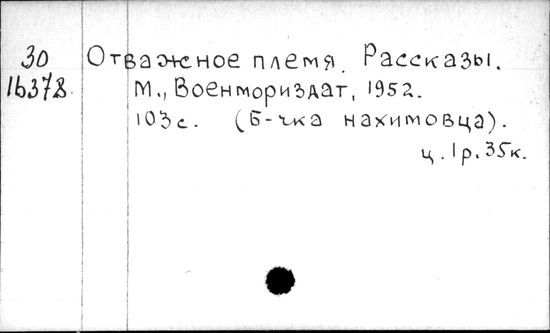 30 Отважное племя. Рассказы.
16378 М., Военмориздат, 1952.
103с. (Б-чка нахимовца).
ц. 1р. 35к.